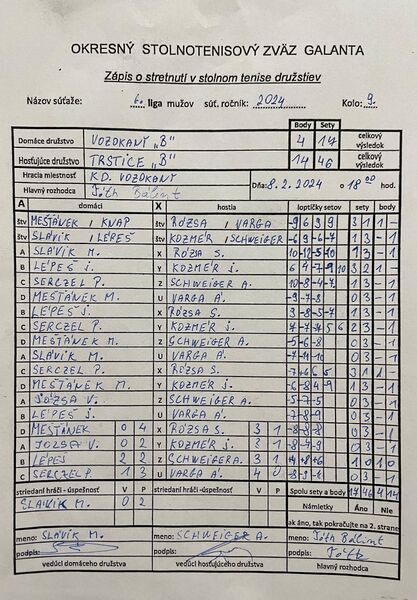 OKRESNÝ STOLNOTENISOVÝ ZVÄZ GALANTA
Zápis o stretnutí v stolnom tenise družstiev
Názov súťaže: 6. liga mužov súť. ročník: 2024 Kolo: 9.
Body Sety
Domáce družstvo VOZOKANY "B" 4 17 celkový výsledok
Hosťujúce družstvo TRSTICE "B" 14 46 celkový výsledok
Hracia miestnosť K.D. VOZOKANY Dňa: 8.2.2024 o 18 00 hod.
Hlavný rozhodca Tóth Bálint
A domáci X hostia loptičky setov sety body
štv MEŠŤÁNEK / KNAP štv RÓZSA / VARGA -9 6 3 9 3 1 1 -
štv SLÁVIK / LÉPEŠ štv KOZMÉR / SCHWEIGER -6 9 -6 -7 1 3 - 1
A SLÁVIK M. X RÓZSA S. 1 3 - 1
B LÉPEŠ J. Y KOZMÉR J. 6 4 -7 -9 10 3 2 1 -
C SERCZEL P. Z SCHWEIGER A. 10 -8 -4 -7 1 3 - 1
D MEŠŤÁNEK M. U VARGA Á. -9 -7 -8 0 3 - 1
B LÉPEŠ J. X RÓZSA S. 1 3 - 1
C SERCZEL P. Y KOZMÉR J. 2 3 - 1
D MEŠŤÁNEK M. Z SCHWEIGER A. -5 -6 -8 0 3 - 1
A SLÁVIK M. U VARGA Á. -7 -11 -10 0 3 - 1
C SERCZEL P. X RÓZSA S. 3 1 1 -
D MEŠŤÁNEK M. Y KOZMÉR J. -6 -8 4 -9 1 3 - 1
A JÓZSA V. Z SCHWEIGER A. -5 -7 -5 0 3 - 1
B LÉPEŠ J. U VARGA Á. -7 -8 -9 0 3 - 1
D MEŠŤÁNEK 0 4 X RÓZSA S. 3 1 0 3 - 1
A JÓZSA V. 0 2 Y KOZMÉR J. 3 1 0 3 - 1
B LÉPEŠ 2 2 Z SCHWEIGER A. 3 1
C SERCZEL P. 1 3 U VARGA Á. 4 0 0 3 - 1
striedaní hráči - úspešnosť V P striedaní hráči - úspešnosť V P Spolu sety a body 17 46 4 14
SLÁVIK M. 0 2 Námietky Áno Nie
ak áno, tak pokračujte na 2. strane
meno: SLÁVIK M. meno: SCHWEIGER A. meno: Tóth Bálint
podpis: podpis: podpis: Tóth
vedúci domáceho družstva vedúci hosťujúceho družstva hlavný rozhodca